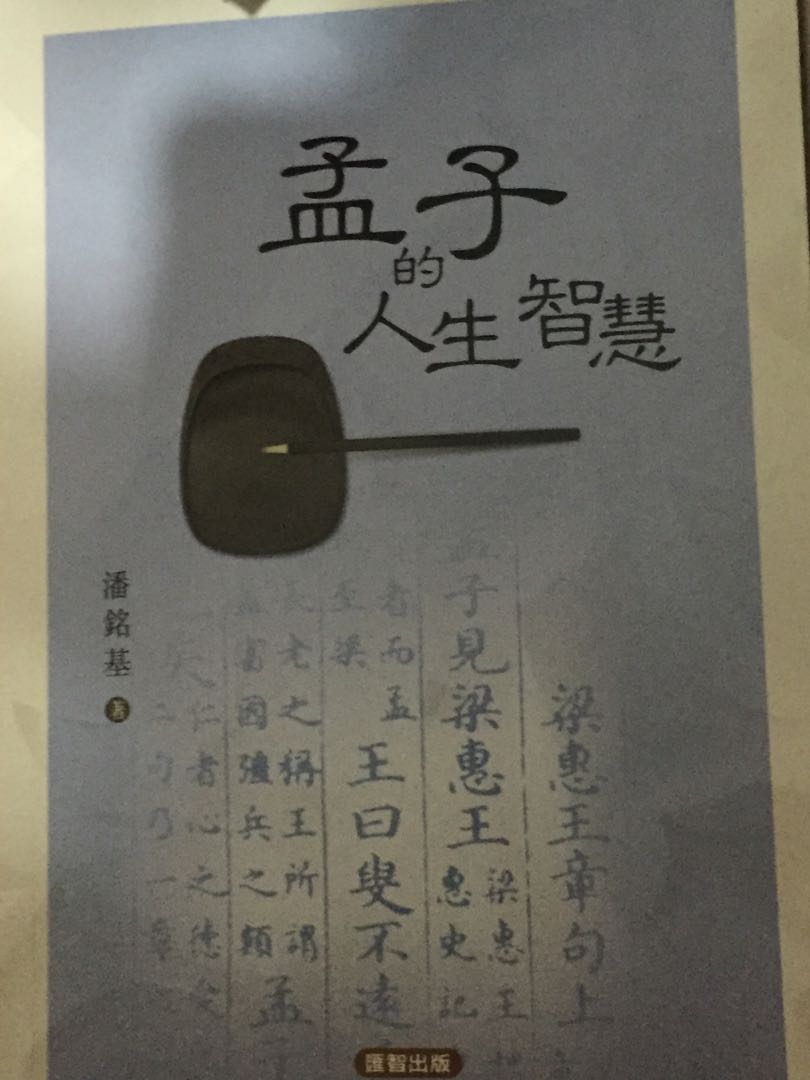 孟子
的
人生智慧
潘銘基 著
梁惠王章句上
子見梁惠王 梁惠王
惠史記
王曰叟不遠
者而孟
至梁
長老之稱王所謂
富國彊兵之類
孟
仁者心之德愛
匯智出版